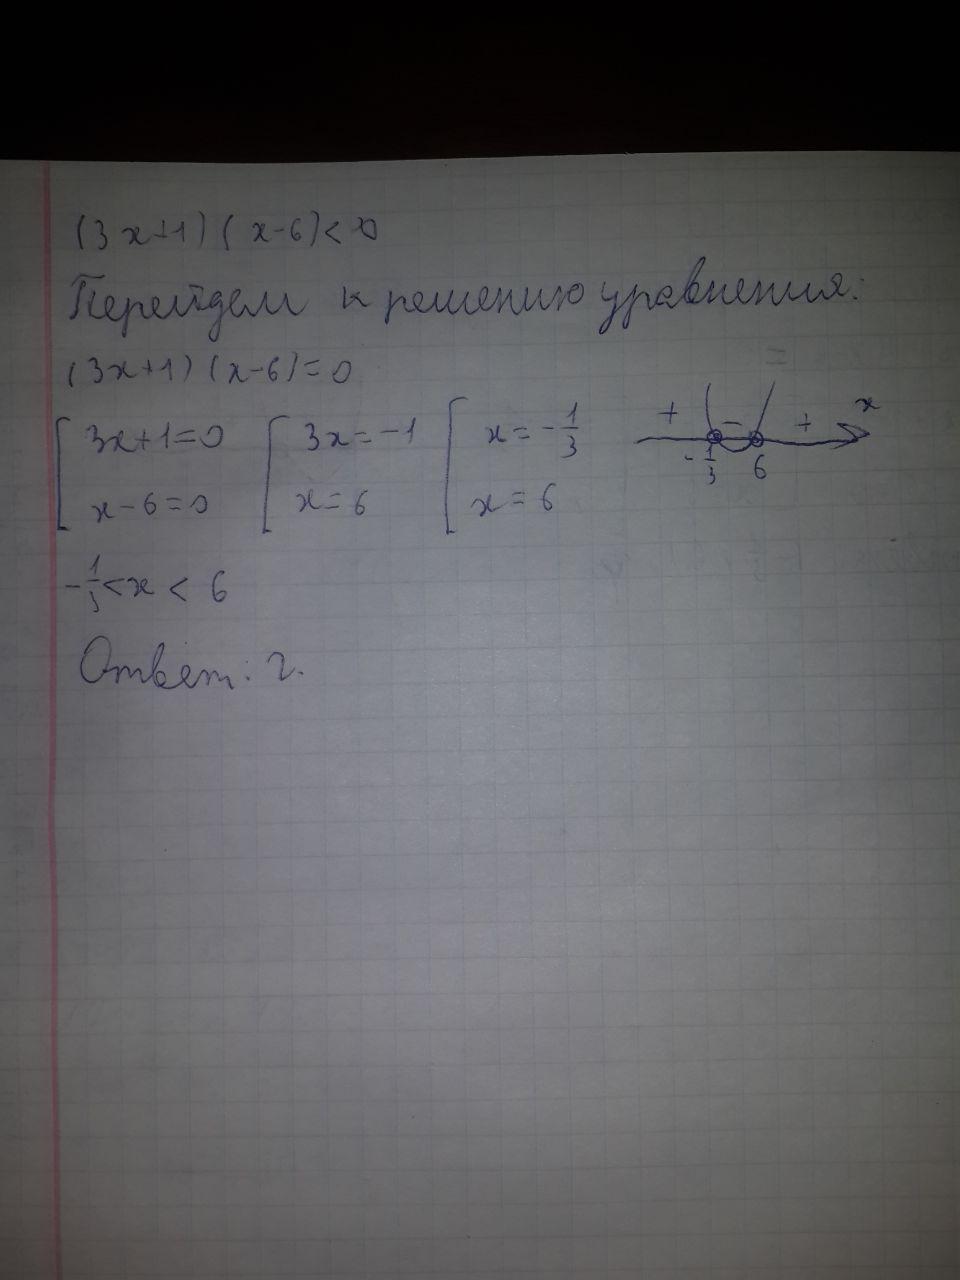 (3x+1)(x-6)<0
Перейдем к решению уравнения:
(3x+1)(x-6)=0
[3x+1=0 [3x=-1 [x=-1/3
x-6=0 x=6 x=6
+ - + x
-1/3 6
-1/3<x<6
Ответ: г.